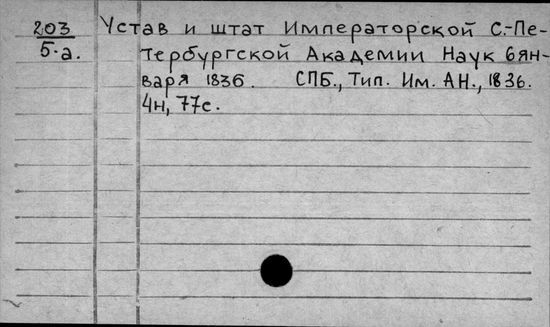 203
5-а.
Устав и штат Императорской С.-Пе-
тербургской Академии Наук 6 ян-
варя 1836. СПБ., Тип. Им. АН., 1836.
4н, 77с.